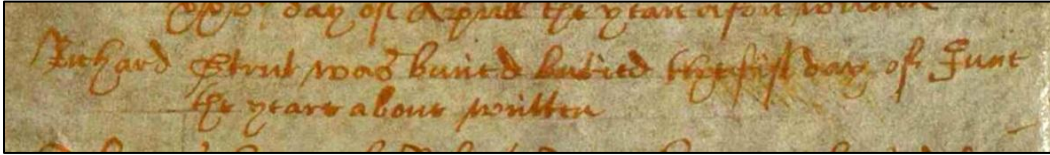 day of Aprill the yeare afore written
Richard Strut was buried buried the first day of June
the yeare above written